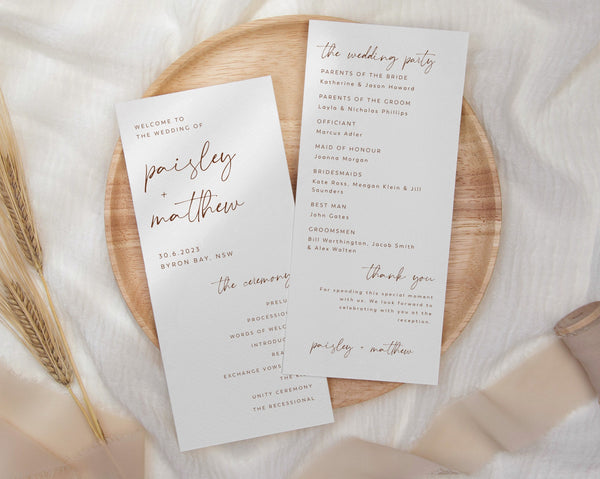 WELCOME TO
THE WEDDING OF
paisley
+
matthew
30.6.2023
BYRON BAY, NSW
the ceremony
WORDS OF
EXCHANGE
UNITY CEREMONY
THE RECESSIONAL
the wedding party
PARENTS OF THE BRIDE
Katherine & Jason Howard
PARENTS OF THE GROOM
Layla & Nicholas Phillips
OFFICIANT
Marcus Adler
MAID OF HONOUR
Joanna Morgan
BRIDESMAIDS
Kate Ross, Meagan Klein & Jill
Saunders
BEST MAN
John Gates
GROOMSMEN
Bill Worthington, Jacob Smith
& Alex Walten
thank you
For spending this special moment
with us. We look forward to
celebrating with you at the
reception.
paisley + matthew